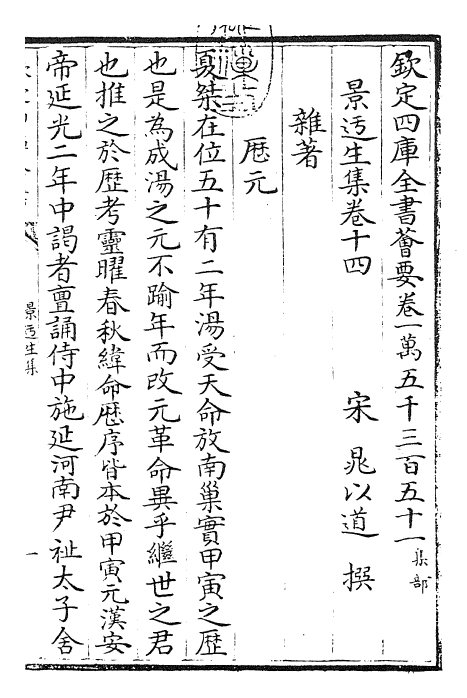 欽定四庫全書薈要卷一萬五千三百五十一集部
景迃生集卷十四　宋　晁以道　撰
雜著
厯元
夏桀在位五十有二年湯受天命放南巢實甲寅之歴
也是為成湯之元不踰年而改元革命異乎繼世之君
也推之於歴考靈曜春秋緯命厯序皆本於甲寅元漢安
帝延光二年中謁者亶誦侍中施延河南尹祉太子舍
景迃生集
一